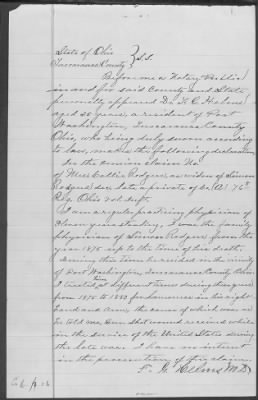 State of Ohio } S.S.
Tuscarawas County
Before me a Notary Public
in and for said County and State
personally appeared Dr. F. C. Helms
aged years, a resident of Port
Washington, Tuscarawas County
Ohio, who being duly sworn according
to law, makes the following declaration
In the pension claim No
of Mrs Callie Rodgers as widow of Simon
Rodgers dec late a private of Co. (A) 76th
Reg. Ohio Vol. Inft.
I am a regular practicing physician of
years standing, I was the family
physician of Simon Rodgers from the
year 1875 up to the time of his death.
During this time he resided in the vicinity
of Port Washington, Tuscarawas County, Ohio.
I treated at different times during the years
from 1875 to 1883 for lameness in his right
hand and Arm, the cause of which was as
he told me, Gun shot wound received while
in the service of the United States during
the late war. I have no interest
in the prosecution of this claim.
Helms M.D.